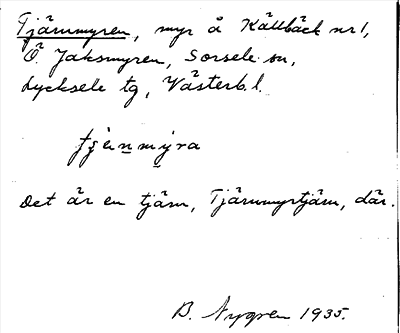 Tjärnmyren, myr å Källbäck nr 1,
Ö. Jaksmyren, Sorsele sn,
Lycksele tg, Västerb. l.
Det är en tjärn, Tjärnmyrtjärn, där.
B. Nygren 1935.